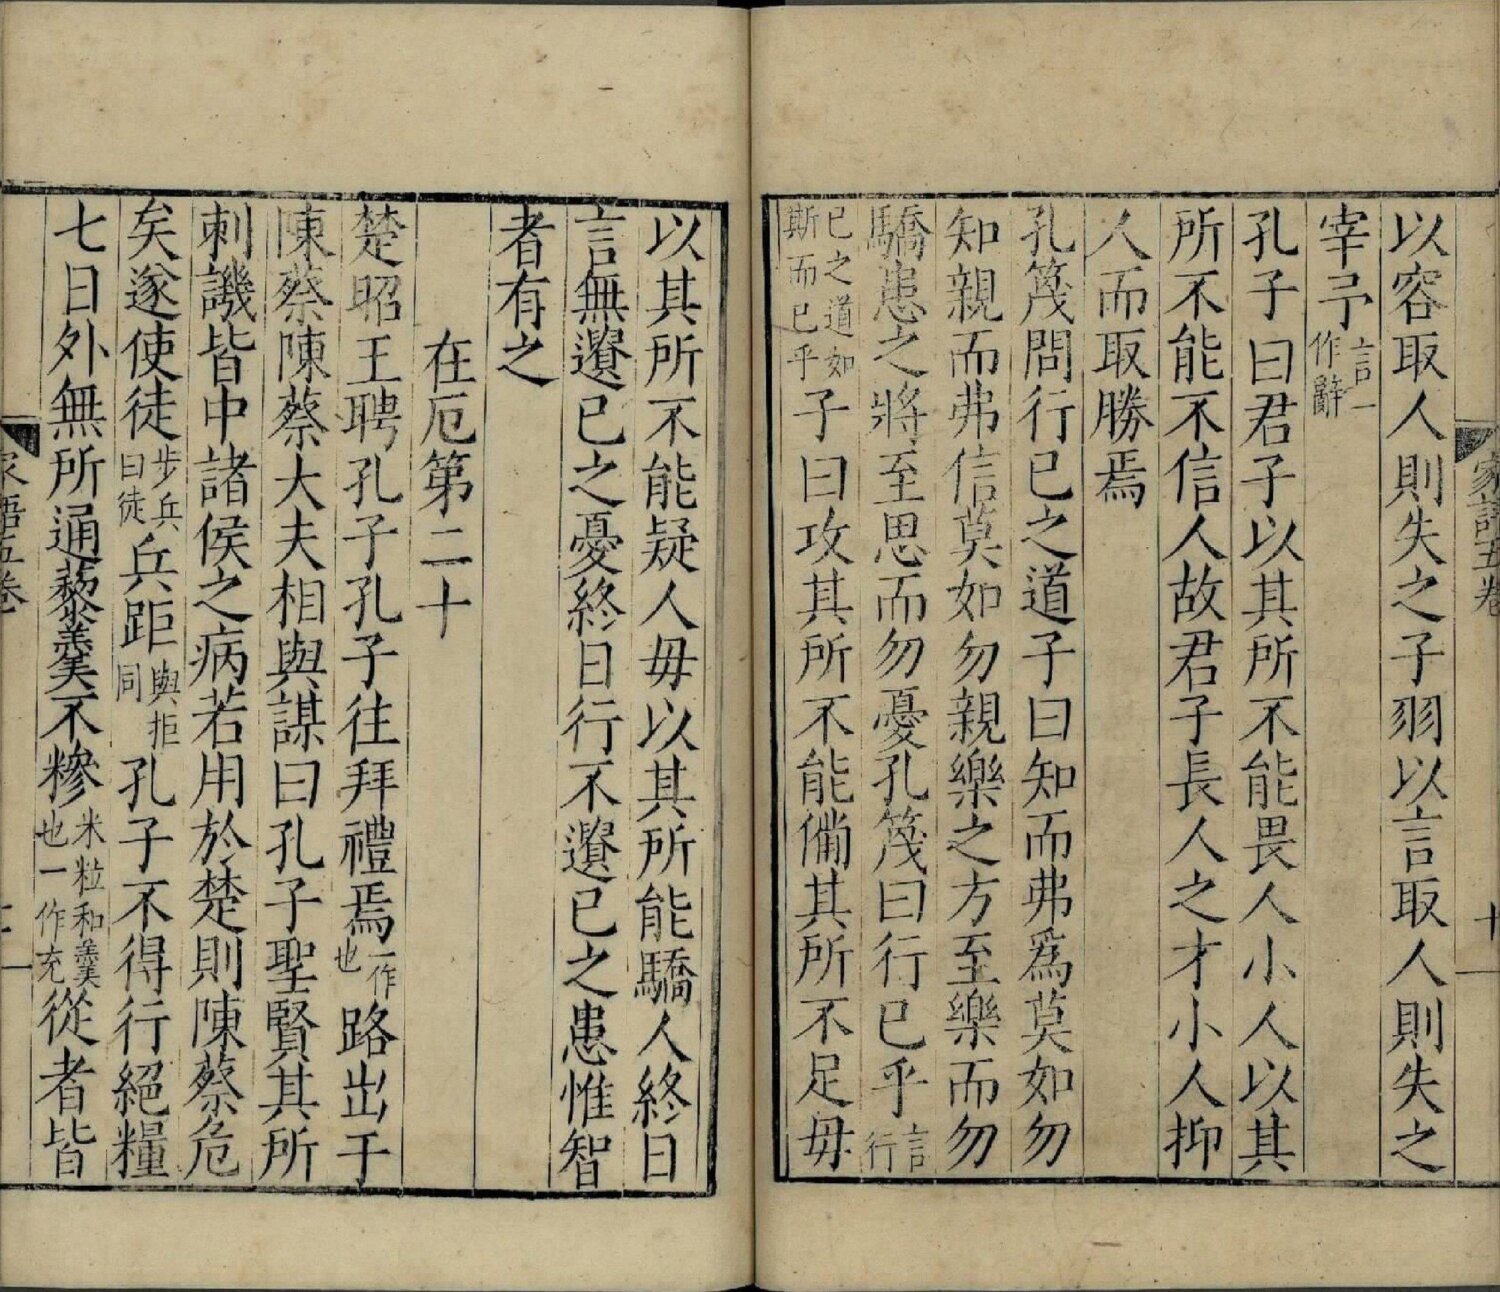 家語五卷
十
以容取人則失之子羽以言取人則失之
宰予言一作辭
孔子曰君子以其所不能畏人小人以其
所不能不信人故君子長人之才小人抑
人而取勝焉
孔篾問行已之道子曰知而弗爲莫如勿
知親而弗信莫如勿親樂之方至樂而勿
驕患之將至思而勿憂孔篾曰行已乎言行
已之道如斯而已乎子曰攻其所不能備其所不足毋
以其所不能疑人毋以其所能驕人終日
言無遺已之憂終日行不遺已之患惟智
者有之
在厄第二十
楚昭王聘孔子孔子往拜禮焉一作也路出于
陳蔡陳蔡大夫相與謀曰孔子聖賢其所
刺譏皆中諸侯之病若用於楚則陳蔡危
矣遂使徒步兵曰徒兵距與拒同孔子不得行絕糧
七日外無所通藜羹不糝米粒和羹也一作充從者皆
家語五卷